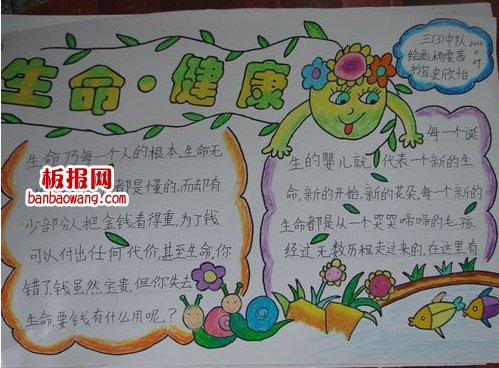 生命·健康
三(3)中队
绘画:杨雯茜
书写:史欣怡
2012
生命乃每一个人的根本.生命无
都是懂的,而却有
少部分人把金钱看得重,为了钱
可以付出任何代价,甚至生命,你
错了,钱虽然宝贵,但你失去
生命,要钱有什么用呢?
板报网
banbaowang.com
每一个诞
生的婴儿就代表一个新的生
命,新的开始,新的花朵,每一个新的
生命都是从一个哭哭啼啼的毛孩
经过无数历程走过来的,在这里有